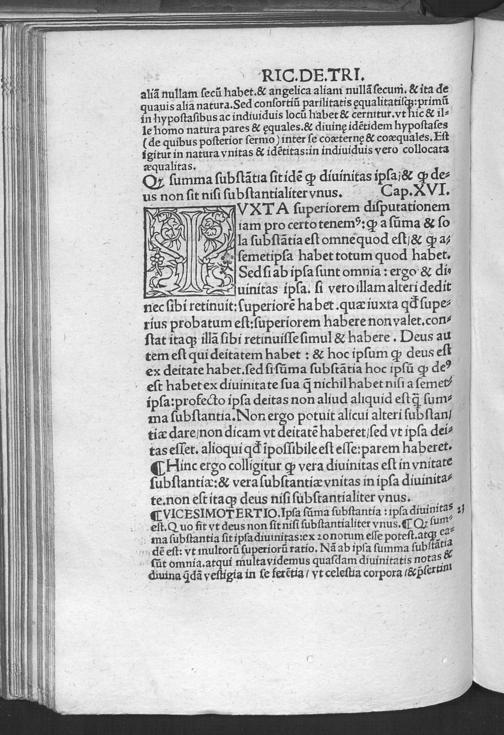 RIC.DE.TRI.
aliā nullam secū habet.& angelica aliam nullā secum. & ita de
quauis alia natura.Sed consortiū parilitatis equalitatisq̧:primū
in hypostasibus ac indiuiduis locū habet & cernitur.vt hic & il-
le homo natura pares & equales.& diuinę idētidem hypostases
(de quibus posterior sermo) inter se coæternę & coæquales. Est
igitur in natura vnitas & idētitas: in indiuiduis vero collocata
æqualitas.
Qȝ summa substātia sit idē qp̄ diuinitas ipsa; & qp̄ de-
us non sit nisi substantialiter vnus. Cap.XVI.
IVXTA superiorem disputationem
iam pro certo tenemꝰ: qp̄ a sūma & so
la substātia est omne quod est; & qp̄ a
semetipsa habet totum quod habet.
Sed si ab ipsa sunt omnia : ergo & di-
uinitas ipsa. si vero illam alteri dedit
nec sibi retinuit: superiorē habet.quæ iuxta qd̄ supe-
rius probatum est; superiorem habere non valet.con-
stat itaq̧ illā sibi retinuisse simul & habere . Deus au
tem est qui deitatem habet : & hoc ipsum qp̄ deus est
ex deitate habet.sed si sūma substātia hoc ipsū qp̄ deꝰ
est habet ex diuinitate sua q̄ nichil habet nisi a semet-
ipsa:profecto ipsa deitas non aliud aliquid est q̄ sum-
ma substantia.Non ergo potuit alicui alteri substan/
tiæ dare/non dicam vt deitatē haberet/sed vt ipsa dei-
tas esset. alioqui qd̄ ipossibile est esse: parem haberet.
¶Hinc ergo colligitur qp̄ vera diuinitas est in vnitate
substantiæ: & vera substantiæ vnitas in ipsa diuinita-
te.non est itaq̧ deus nisi substantialiter vnus.
¶VICESIMOTERTIO.Ipsa sūma substantia : ipsa diuinitas 23
est.Quo fit vt deus non sit nisi substantialiter vnus.¶Qȝ sum-
ma substantia sit ipsa diuinitas:ex 20 notum esse potest.atq̧ ea-
dē est: vt multorū superiorū ratio. Nā ab ipsa summa substātia
sūt omnia.atqui multa videmus quasdam diuinitatis notas &
diuina q̄dā vestigia in se ferētia/ vt celestia corpora /& p̄sertim